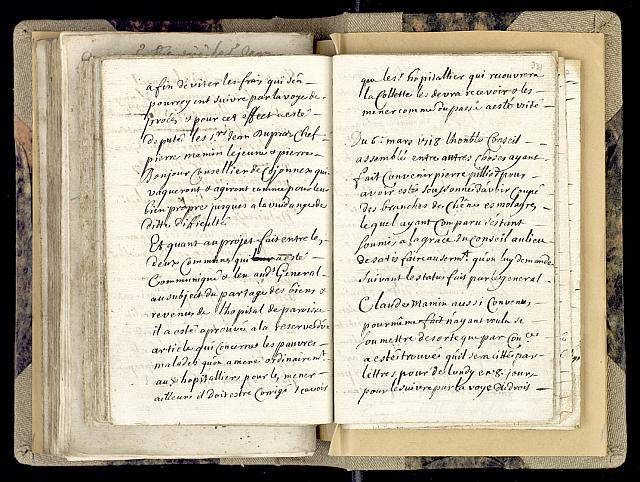 afin deviter les fraix qui sen
pourroyent suivre par la voye de
proces & pour cet effect a esté
deputé les srs Jean Duprix Chef
pierre mamin le jeune & pierre
Bonjour Consellier de Cojonnex qui
vaqueront & agiront comme pour leur
bien propre jusques a la vuidange de
ditte difficulté
Et quant au projet fait entre les
deux Communs qui a esté
Communiqué & leu audt General
au subject du partage des biens &
revenus de l'hopital de paroisse
il a esté aprouvé a la reserve du
article qui concerne les pauvres
malades qu'on amene ordinairemt
aux hopitalliers pour les mener
ailleurs il doit estre Corrigé scavoir
331
que les hopitallier qui recouvrera
la Collette les devra recevoir & les
mener comme du passé a esté usité
Du 6e mars 1718 l'honble Conseil
assemblé entre autres choses ayant
fait Convenir pierre pilliod pour
avoir esté soussonné davoir Coupé
des branches de Chêne es molayres
lequel ayant Comparu s'estant
soumis a la grace du Conseil au lieu
de satisfaire au sermt qu'on luy demande
suivant le status fait par le general
Claude Mamin aussi Convenu
pour même fait n'ayant voulu se
soumettre de sorte que par Con
a esté trouvé qu'il sera citté par
lettres pour de lundy en 8 jours
pour le suivre par la voye de droit